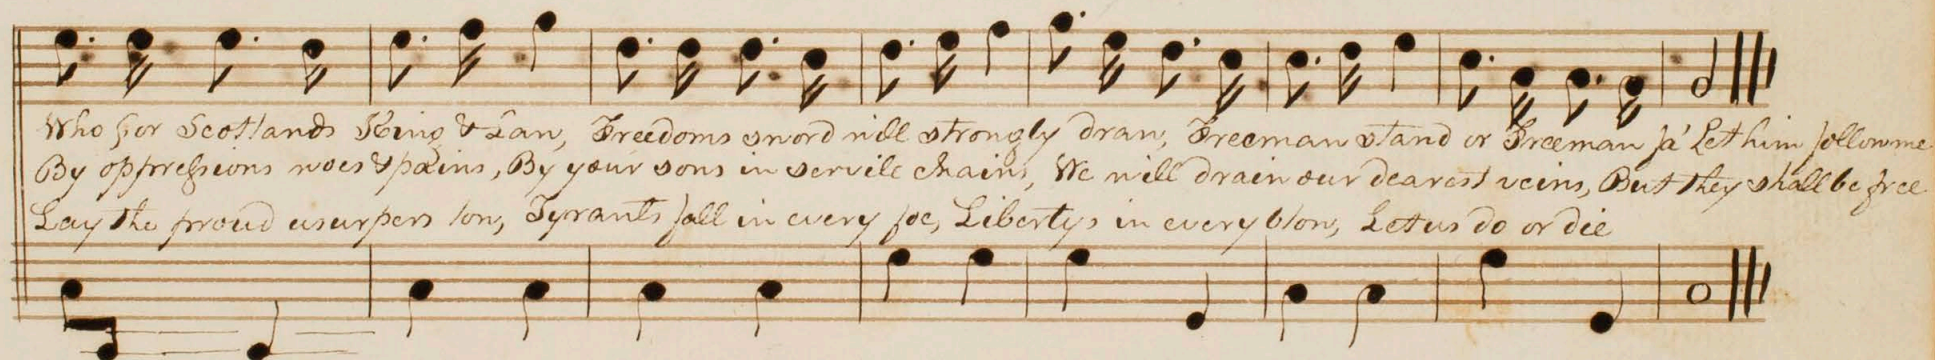 Who for Scotlands King & Law, Freedoms sword will strongly draw, Freeman stand or Freeman fa' Let him follow me
By oppressions woes & pains, By your sons in servile chains, We will drain our dearest veins, But they shall be free
Lay the proud usurpers low, Tyrants fall in every foe, Libertys in every blow, Let us do or die